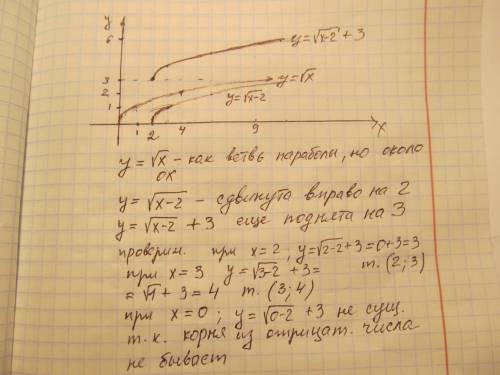 y
6
y=√x-2 + 3
3
y=√x
2
y=√x-2
1
1 2 4 9 x
y = √x - как ветвь параболы, но около
ох
y = √x-2 - сдвинута вправо на 2
y = √x-2 + 3 еще поднята на 3
проверим. при x=2, y=√2-2+3=0+3=3
при x=3 y=√3-2 +3= т. (2;3)
= √1 + 3 = 4 т. (3;4)
при x=0; y=√0-2 +3 не сущ.
т.к. корня из отрицат. числа
не бывает